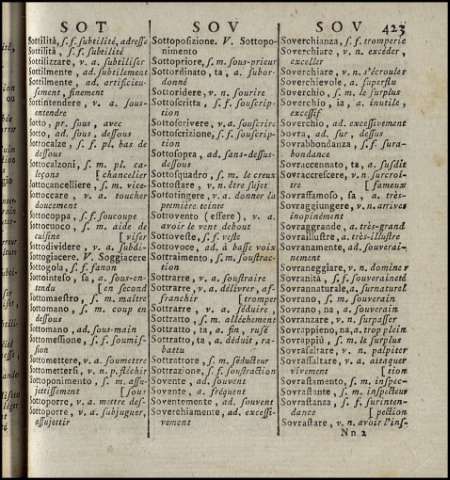 SOT SOV SOV 423
Sottilità, s. f. subtilité, adresse
Sottilità, s. f. subtilité
Sottilizzare, v. a. subtiliser
Sottilmente, ad. subtilement
Sottilmente, ad. artificieu-
sement, finement
Sottintendere, v. a. sous-
entendre
Sotto, pr. sous, avec
Sotto, ad. sous, dessous
Sottocalze, s. f. pl. bas de
dessous
Sottocalzoni, s. m. pl. ca-
leçons [chancelier
Sottocancelliere, s. m. vice-
Sottoccare, v. a. toucher
doucement
Sottocoppa, s. f. soucoupe
Sottocuoco, s. m. aide de
cuisine [viser
Sottodividere, v. a. subdi-
Sottogiacere. V. Soggiacere
Sottogola, s. f. fanon
Sottointeso, sa, a. sous-en-
tendu [en second
Sottomaestro, s. m. maître
Sottomano, s. m. coup en
dessous
Sottomano, ad. sous-main
Sottomessione, s. f. soumis-
sion
Sottomettere, v. a. soumettre
Sottomettersi, v. n. p. fléchir
Sottoponimento, s. m. assu-
jettissement [sous
Sottoporre, v. a. mettre des-
Sottoporre, v. a. subjuguer,
assujettir
Sottoposizione. V. Sottopo-
nimento
Sottopriore, s. m. sous-prieur
Sottordinato, ta, a. subor-
donné
Sottoridere, v. n. sourire
Sottoscritta, s. f. souscrip-
tion
Sottoscrivere, v. a. souscrire
Sottoscrizione, s. f. souscrip-
tion
Sottosopra, ad. sans-dessus-
dessous
Sottosquadro, s. m. le creux
Sottostare, v. n. être sujet
Sottotingere, v. a. donner la
première teinte
Sottovento (essere), v. a.
avoir le vent debout
Sottoveste, s. f. veste
Sottovoce, ad. à basse voix
Sottraimento, s. m. soustrac-
tion
Sottrarre, v. a. soustraire
Sottrarre, v. a. délivrer, af-
franchir [tromper
Sottrarre, v. a. séduire,
Sottratto, s. m. alléchement
Sottratto, ta, a. fin, rusé
Sottratto, ta, a. déduit, ra-
battu
Sottrattore, s. m. séducteur
Sottrazione, s. f. soustraction
Sovente, ad. souvent
Sovente, a. fréquent
Soventemente, ad. souvent
Soverchiamente, ad. excessi-
vement
Soverchianza, s. f. tromperie
Soverchiare, v. n. excéder,
exceller
Soverchiare, v. n. s'écrouler
Soverchievole, a. superflu
Soverchio, s. m. le surplus
Soverchio, ia, a. inutile,
excessif
Soverchio, ad. excessivement
Sovra, ad. sur, dessus
Sovrabbondanza, s. f. sura-
bondance
Sovraccennato, ta, a. susdit
Sovraccrescere, v. n. surcroî-
tre [fameux
Sovraffamoso, sa, a. très-
Sovraggiungere, v. n. arriver
inopinément
Sovraggrande, a. très-grand
Sovraillustre, a. très-illustre
Sovranamente, ad. souverai-
nement
Sovraneggiare, v. n. dominer
Sovranità, s. f. souveraineté
Sovrannaturale, a. surnaturel
Sovrano, s. m. souverain
Sovrano, na, a. souverain
Sovranzare, v. n. surpasser
Sovrappieno, na, a. trop plein
Sovrappiù, s. m. le surplus
Sovrasaltare, v. n. palpiter
Sovrassaltare, v. a. attaquer
vivement [tion
Sovrastamento, s. m. inspec-
Sovrastante, s. m. inspecteur
Sovrastanza, s. f. surinten-
dance [pection
Sovrastare, v. n. avoir l'ins-
Nn 2